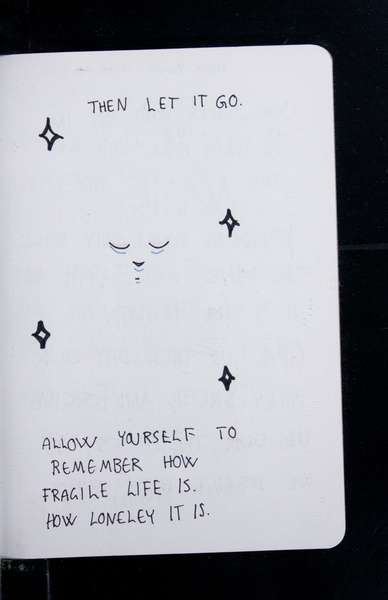 THEN LET IT GO.
ALLOW YOURSELF TO
REMEMBER HOW
FRAGILE LIFE IS.
HOW LONELEY IT IS.